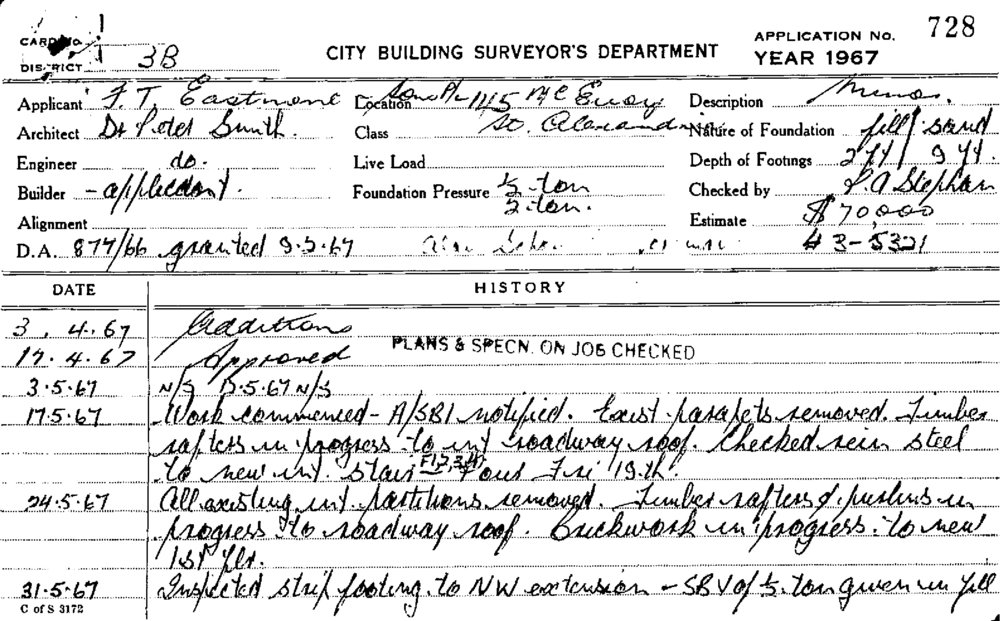 CARD No. 1
DISTRICT 3B
CITY BUILDING SURVEYOR'S DEPARTMENT
APPLICATION No. 728
YEAR 1967
Applicant F. T. Eastment Location 145 McEvoy Description
Architect Dr Peter Smith. Class St. Alexandria Nature of Foundation fill / sand
Engineer do. Live Load Depth of Footings 2 ft / 9 ft.
Builder - applicant. Foundation Pressure ½ ton Checked by P. A Stephan
2 ton. Estimate $70,000
Alignment
D.A. 877/66 granted 9-3-67 43-5321
DATE HISTORY
3. 4.67 Additions
17.4.67 Approved PLANS & SPECN. ON JOB CHECKED
3.5.67 N/S .5.67 N/S
17.5.67 Work commenced - A/SBI notified. Exist parapets removed. Timber
rafters in progress to int roadway roof. Checked rein steel
to new int. stair F1,2,3,4. Pour Fri 19th.
24.5.67 All existing int. partitions removed. Timber rafters & purlins in
progress to roadway roof. Brickwork in progress to new
1st flr.
31.5.67 Inspected strip footing to NW extension - SBV of ½ ton given in fill
C of S 3172